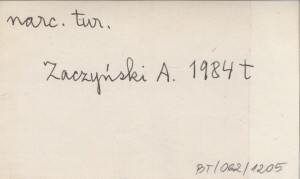 narc. tur.
Zaczyński A. 1984 t
BT/062/1205